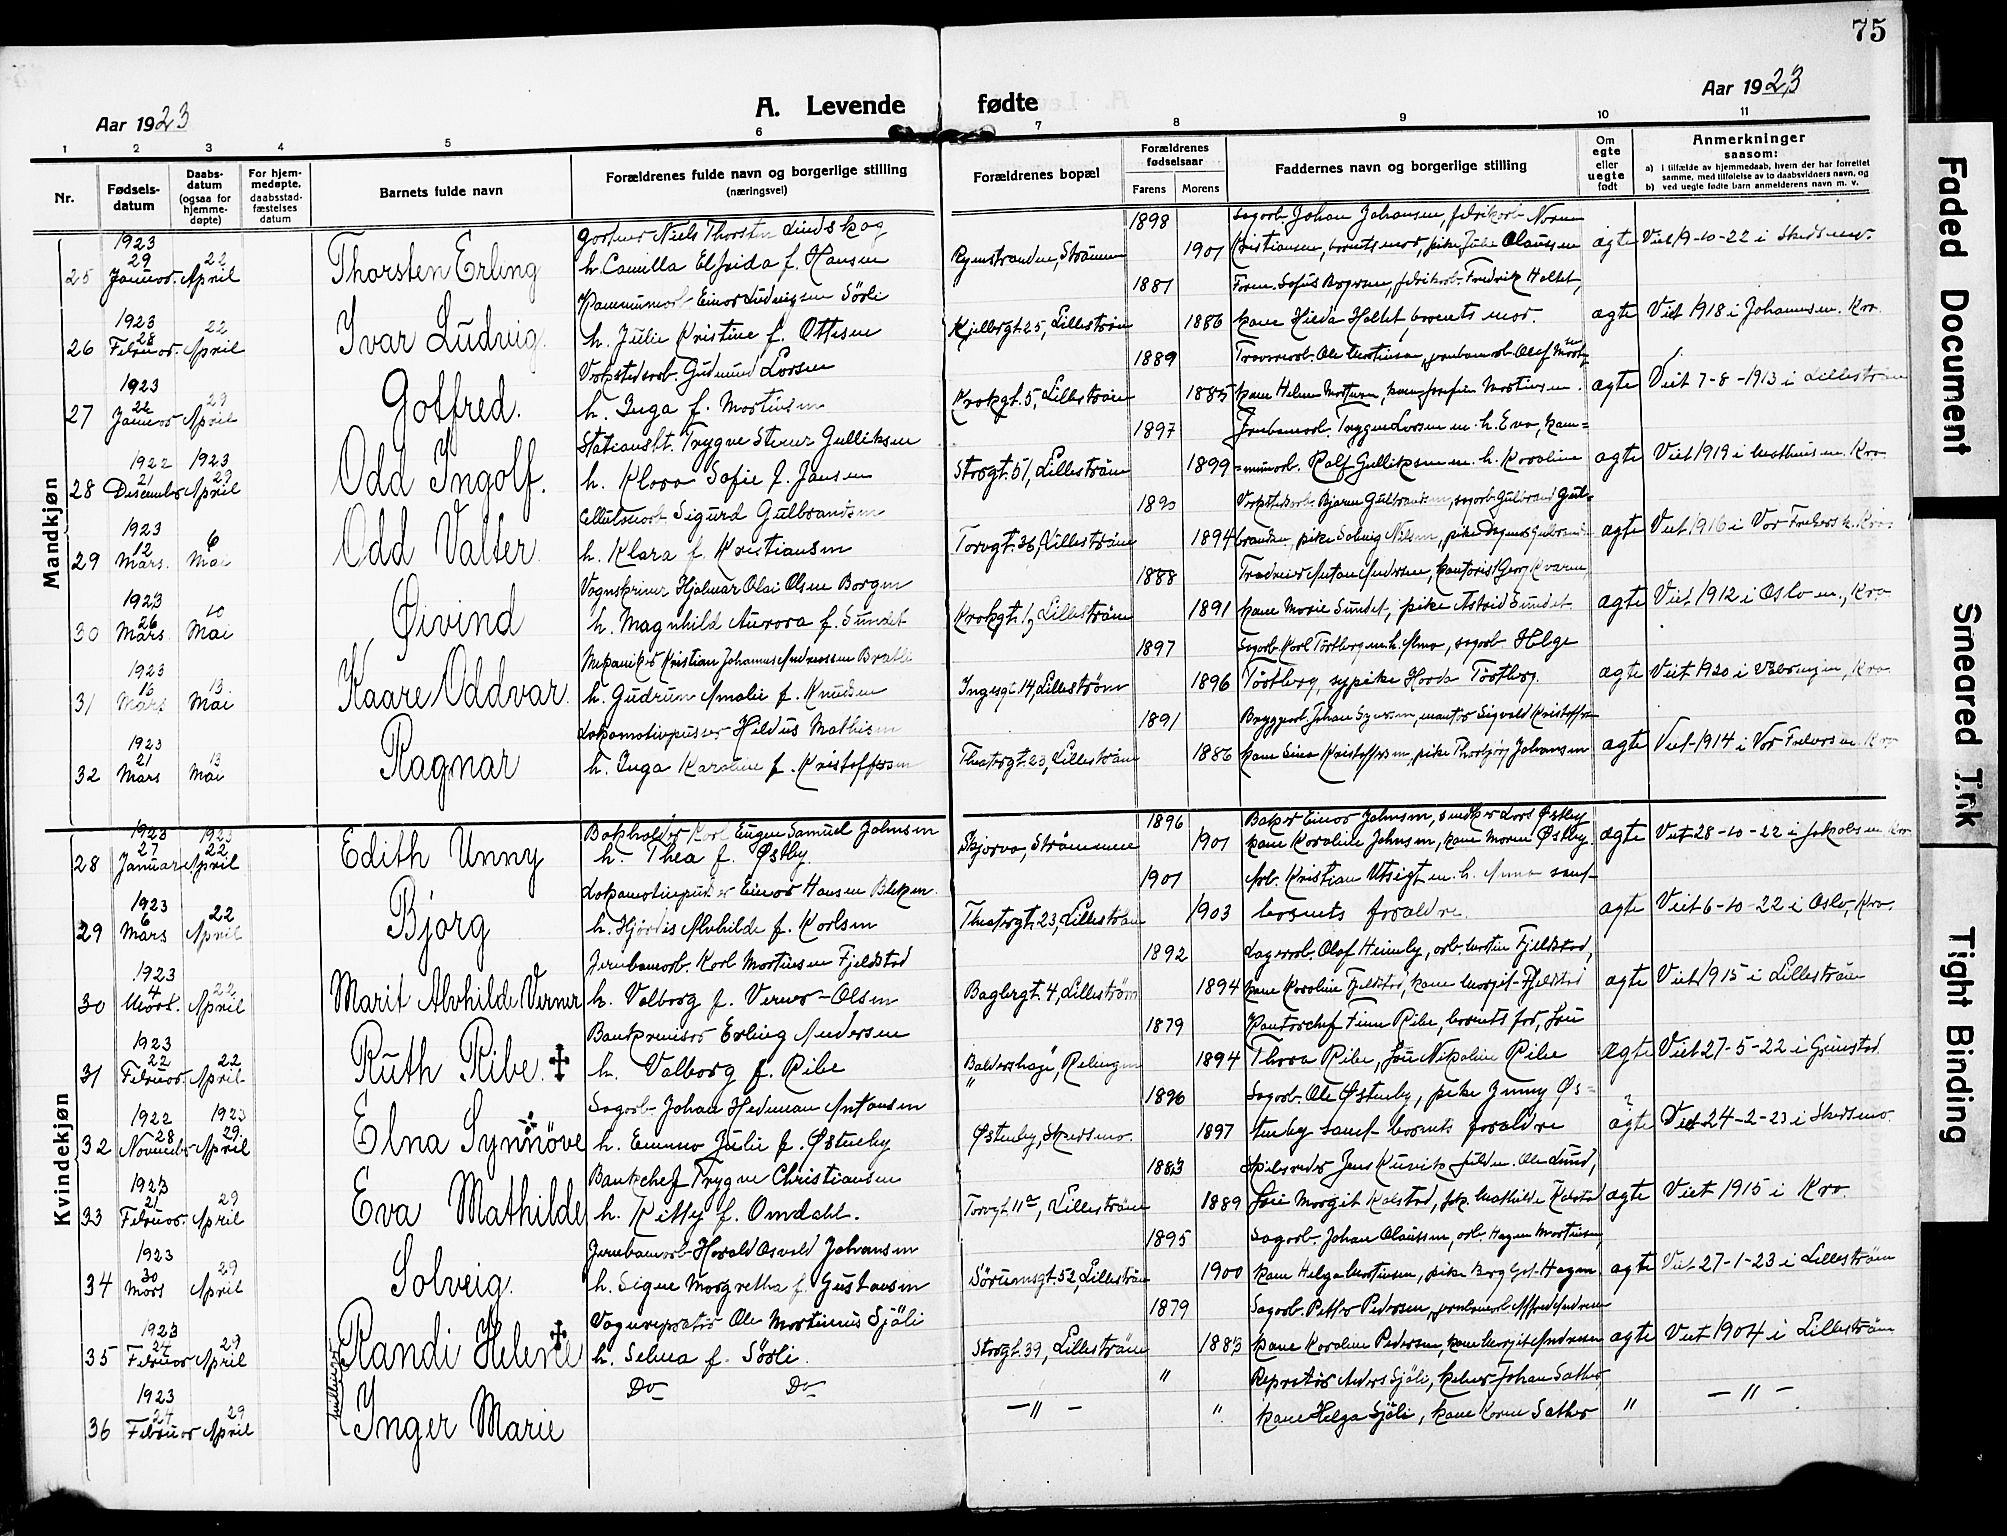 75
Aar 1923
A. Levende fødte
Aar 1923
1 2 3 4 5 6 7 8 9 10 11
Nr.
Fødsels-datum
Daabs-datum (ogsaa for hjemme-døpte)
For hjem-medøpte, daabsstad-fæstelses datum
Barnets fulde navn
Forældrenes fulde navn og borgerlige stilling (næringsvei)
Forældrenes bopæl
Forældrenes fødselsaar
Farens Morens
Faddernes navn og borgerlige stilling
Om egte eller uegte født
Anmerkninger saasom:
a) i tilfælde av hjemmedaab, hvem der har forrettet samme, med tilføielse av to daabsvidners navn, og
b) ved uegte fødte barn anmelderens navn m. v.
Mandkjøn
25 1923 29 Januar. 22 April Thorsten Erling
Gartner Niels Thorsten Lindskog
h. Camilla Elfrida f. Hansen
Strømmen 1898 1901
Sagarb. Johan Johansen,
Kristiansen, barnets mor, pike Julie Olaussen
ægte Viet 9-10-22 i Skedsmo.
26 1923 28 Februar. 22 April Ivar Ludvig.
Einar Ludvigsen Sørli
h. Julie Kristine f. Ottesen
Kjellergt. 25, Lillestrøm 1881 1886
Fredrik Hallet,
kone Hilda Hallet, barnets mor.
ægte Viet 1918 i Johannesm. Kra.
27 1923 22 Januar 29 April Gotfred.
Verkstedarb. Gudmund Larsen
h. Inga f. Martinsen
Krokgt. 5, Lillestrøm 1889 1885
Ole Martinsen, jernbanearb. Olaf
kone Helene kone Josefine Martinsen.
ægte Viet 7-8-1913 i Lillestrøm
28 1922 21 Desember 1923 29 April Odd Ingolf.
Stationsbt. Trygve Steinar Gulliksen
h. Klara Sofie f. Jansen
Storgt. 51, Lillestrøm 1897 1899
Jernbanearb. Trygve Larsen m. h. Eva, kom=
=munearb. Ralf Gulliksen m. h. Karoline
ægte Viet 1919 i Kra
29 1923 12 Mars. 6 Mai Odd Valter
Sigurd Gulbrandsen
h. Klara f. Kristiansen
Torvgt. 36, Lillestrøm 1894
Bjarne Gulbrandsen, sagarb. Gulbrand Gul=
brandsen, pike Solveig Nilsen, pike
ægte Viet 1916 i Vor Frelsers k. Kra.
30 1923 26 Mars. 10 Mai Øivind
Vognskriver Hjalmar Olai Olsen Borgen
h. Magnhild Aurora f. Sundet
Krokgt. Lillestrøm 1888 1891
Anton Andersen, kontorist Georg
kone Marie Sundet, pike Astrid Sundet
ægte Viet 1912 i Oslo m., Kra
31 1923 16 Mars 13 Mai Kaare Oddvar.
Mekaniker Kristian Johannes Andreassen
h. Gudrun Amalie f. Knudsen
Ingesgt 14, Lillestrøm 1897 1896
Sagarb. Karl Törtberg m. h. Anna, sagarb. Helge
Törtberg, sypike Törtberg.
ægte Viet 1920 i Kra
32 1923 21 Mars 13 Mai Ragnar
Lokomotivpusser Hildus Mathisen
h. Inga Karoline f. Kristoffersen
Theatergt. 23, Lillestrøm 1891 1886
Johan Sigvald Kristoffersen
kone Lina Kristoffersen, pike Thorbjørg Johansen
ægte Viet 1914 i Vor Frelsers k. Kra
Kvindekjøn
28 1923 27 Januar 1923 22 April Edith Unny
Bokholder Karl Eugen Samuel Johnsen
h. Thea f. Østby
Strømmen 1896 1901
Baker Einar Johnsen, snedker Lars Østby
kone Karoline Johnsen, kone Maren Østby.
ægte Viet 28-10-22 i Jakobs m. Kra
29 1923 6 Mars 22 April Bjørg
Lokomotivpudser Einar Hansen
h. Hjørdis Alvhilde f. Karlsen
Theatergt. 23, Lillestrøm 1901 1903
Arb. Kristian Utsigt m. h. Anna samt
barnets forældre.
ægte Viet 6-10-22 i Oslo, Kra.
30 1923 4 Mars. 22 April Marit Alvhilde Verner
Jernbanearb. Karl Martinsen Fjeldstad
h. Valborg f. Verner-Olsen
Baglergt. 4, Lillestrøm 1892 1894
Lagerarb. Olaf Heimly, arb. Martin Fjeldstad,
kone Karoline Fjeldstad, kone Margit Fjeldstad
ægte Viet 1915 i Lillestrøm
31 1923 22 Februar. 22 April Ruth Ribe. ✝
Bankrevisor Erling Andersen
h. Valborg f. Ribe
Baldershage, Relingen 1879 1894
Kontorchef Finn Ribe, barnets far, frú
Thora Ribe, frú Nikoline Ribe
ægte Viet 27-5-22 i Grimstad.
32 1922 28 November 1923 29. April Elna Synnöve
Sagarb. Johan Herman Antonsen
h. Emma Julie f. Østenby
Østenby, Skedsmo. 1896 1897
Sagarb. Ole Østenby, pike Jenny Øs=
tenby samt barnets forældre
? ægte Viet 24-2-23 i Skedsmo.
33 1923 21 Februar. 29 April Eva Mathilde
Bankchef Trygve Christiansen
h. Kitty f. Omdahl.
Torvgt. 11a, Lillestrøm 1883 1889
Jens Ole Lund,
frú Margit Kalstad, frk. Mathilde Kalstad
ægte Viet 1915 i Kra
34 1923 30 Mars 29 April Solveig.
Jernbanearb. Harald Osvald Johansen
h. Signe Margretha f. Gustavsen
Sørumsgt. 52, Lillestrøm 1895 1900
Sagarb. Johan Olaussen, arb. Hagen Martinsen,
kone Helga Martinsen, pike Hagen
ægte Viet 27-1-23 i Lillestrøm
35 1923 24 Februar 29 April Randi Helene ✝
Vognreparatør Ole Martinius Sjöli
h. Selma f. Sörli.
Storgt. 39, Lillestrøm 1879 1883
Sagarb. Petter Pedersen, jernbanearb. Alfred Andersen
kone Karoline Pedersen, kone Margit Andersen
ægte Viet 1904 i Lillestrøm
tvillinger
36 1923 24 Februar 29 April Inger Marie
Do Do
— " — " "
Reparatør Anders Sjöli, kelner Johan Sæther,
kone Helga Sjöli, kone Karen Sæther
" — " —
Faded Document
Smeared Ink
Tight Binding